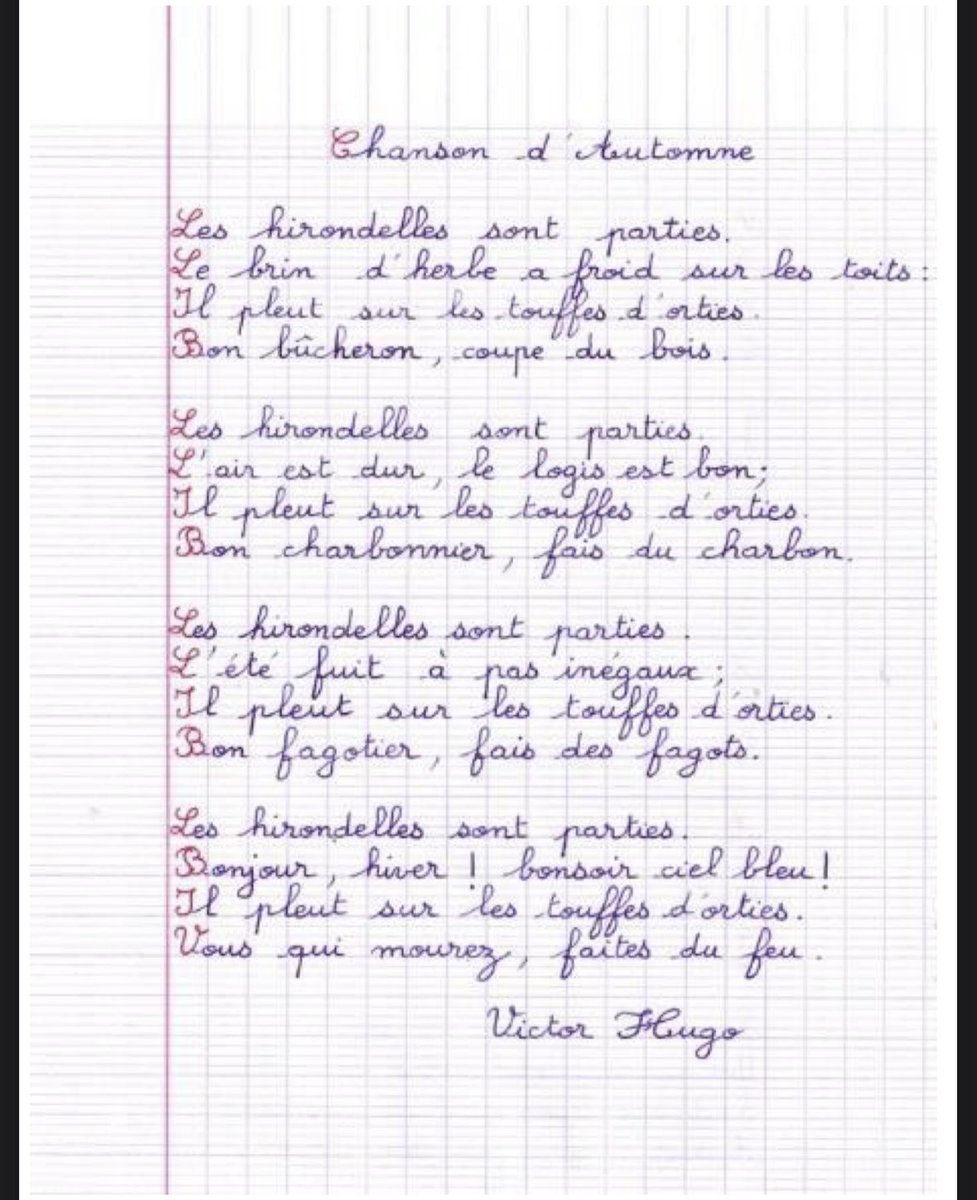 Chanson d'Automne
Les hirondelles sont parties.
Le brin d'herbe a froid sur les toits :
Il pleut sur les touffes d'orties.
Bon bûcheron, coupe du bois.
Les hirondelles sont parties.
L'air est dur, le logis est bon;
Il pleut sur les touffes d'orties.
Bon charbonnier, fais du charbon.
Les hirondelles sont parties.
L'été fuit à pas inégaux ;
Il pleut sur les touffes d'orties.
Bon fagotier, fais des fagots.
Les hirondelles sont parties.
Bonjour, hiver ! bonsoir ciel bleu !
Il pleut sur les touffes d'orties.
Vous qui mourez, faites du feu.
Victor Hugo